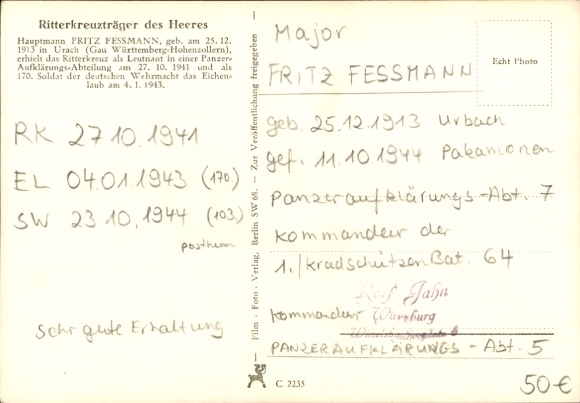 Ritterkreuzträger des Heeres
Hauptmann FRITZ FESSMANN, geb. am 25. 12.
1913 in Urach (Gau Württemberg-Hohenzollern),
erhielt das Ritterkreuz als Leutnant in einer Panzer-
Aufklärungs-Abteilung am 27. 10. 1941 und als
170. Soldat der deutschen Wehrmacht das Eichen-
laub am 4. 1. 1943.
RK 27.10.1941
EL 04.01.1943 (170)
SW 23.10.1944 (103.)
posthum
Sehr gute Erhaltung
— Film - Foto - Verlag, Berlin SW 68. — Zur Veröffentlichung freigegeben —
C 2235
Major
FRITZ FESSMANN
Echt Photo
geb. 25.12.1913 Urbach
gef. 11.10.1944 Pakamonen
Panzeraufklärungs-Abt. 7
Kommandeur der
1./Kradschützen Bat. 64
Rolf Jahn
Kommandeur Würzburg
PANZERAUFKLÄRUNGS - Abt. 5
50€